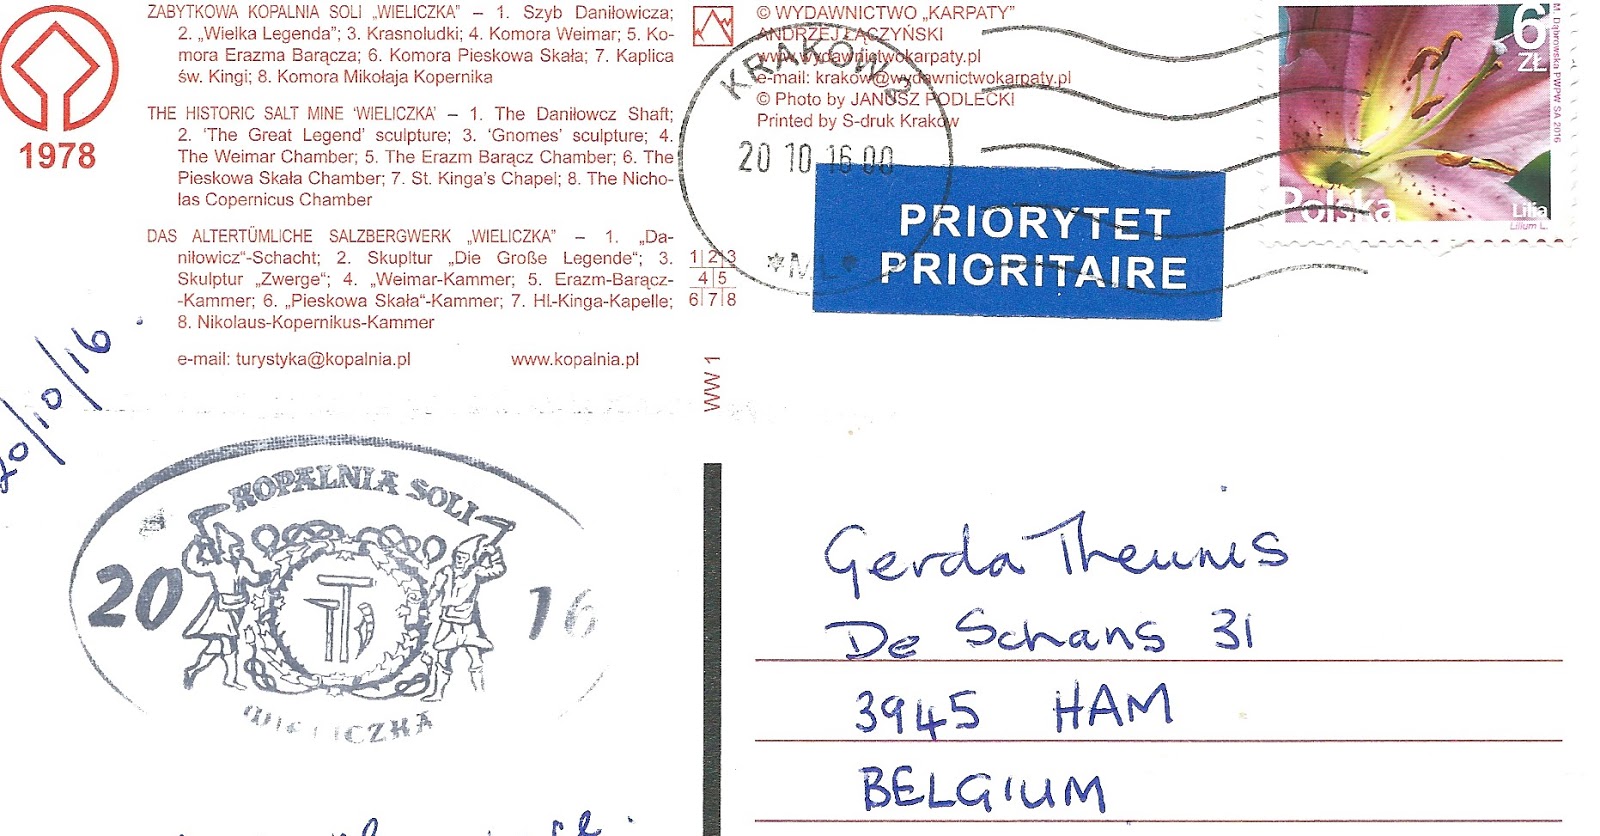 1978
ZABYTKOWA KOPALNIA SOLI „WIELICZKA” – 1. Szyb Daniłowicza;
2. „Wielka Legenda”; 3. Krasnoludki; 4. Komora Weimar; 5. Ko-
mora Erazma Barącza; 6. Komora Pieskowa Skała; 7. Kaplica
św. Kingi; 8. Komora Mikołaja Kopernika
THE HISTORIC SALT MINE ‘WIELICZKA’ – 1. The Daniłowcz Shaft;
2. ‘The Great Legend’ sculpture; 3. ‘Gnomes’ sculpture; 4.
The Weimar Chamber; 5. The Erazm Barącz Chamber; 6. The
Pieskowa Skała Chamber; 7. St. Kinga’s Chapel; 8. The Nicho-
las Copernicus Chamber
DAS ALTERTÜMLICHE SALZBERGWERK „WIELICZKA” – 1. „Da-
niłowicz“-Schacht; 2. Skupltur „Die Große Legende“; 3.
Skulptur „Zwerge“; 4. „Weimar-Kammer; 5. Erazm-Barącz-
-Kammer; 6. „Pieskowa Skała“-Kammer; 7. Hl.-Kinga-Kapelle;
8. Nikolaus-Kopernikus-Kammer
e-mail: turystyka@kopalnia.pl www.kopalnia.pl
1 2 3
4 5
6 7 8
WW 1
© WYDAWNICTWO „KARPATY”
ANDRZEJ ŁĄCZYŃSKI
www.wydawnictwokarpaty.pl
e-mail: krakow@wydawnictwokarpaty.pl
© Photo by JANUSZ PODLECKI
Printed by S-druk Kraków
KRAKÓW 2
20 10 16 00
*ML*
PRIORYTET
PRIORITAIRE
6
ZŁ
M. Dąbrowska PWPW SA 2016
Polska
Lilia
Lilium L.
20/10/16.
KOPALNIA SOLI
2016
WIELICZKA
Gerda Theunis
De Schans 31
3945 HAM
BELGIUM